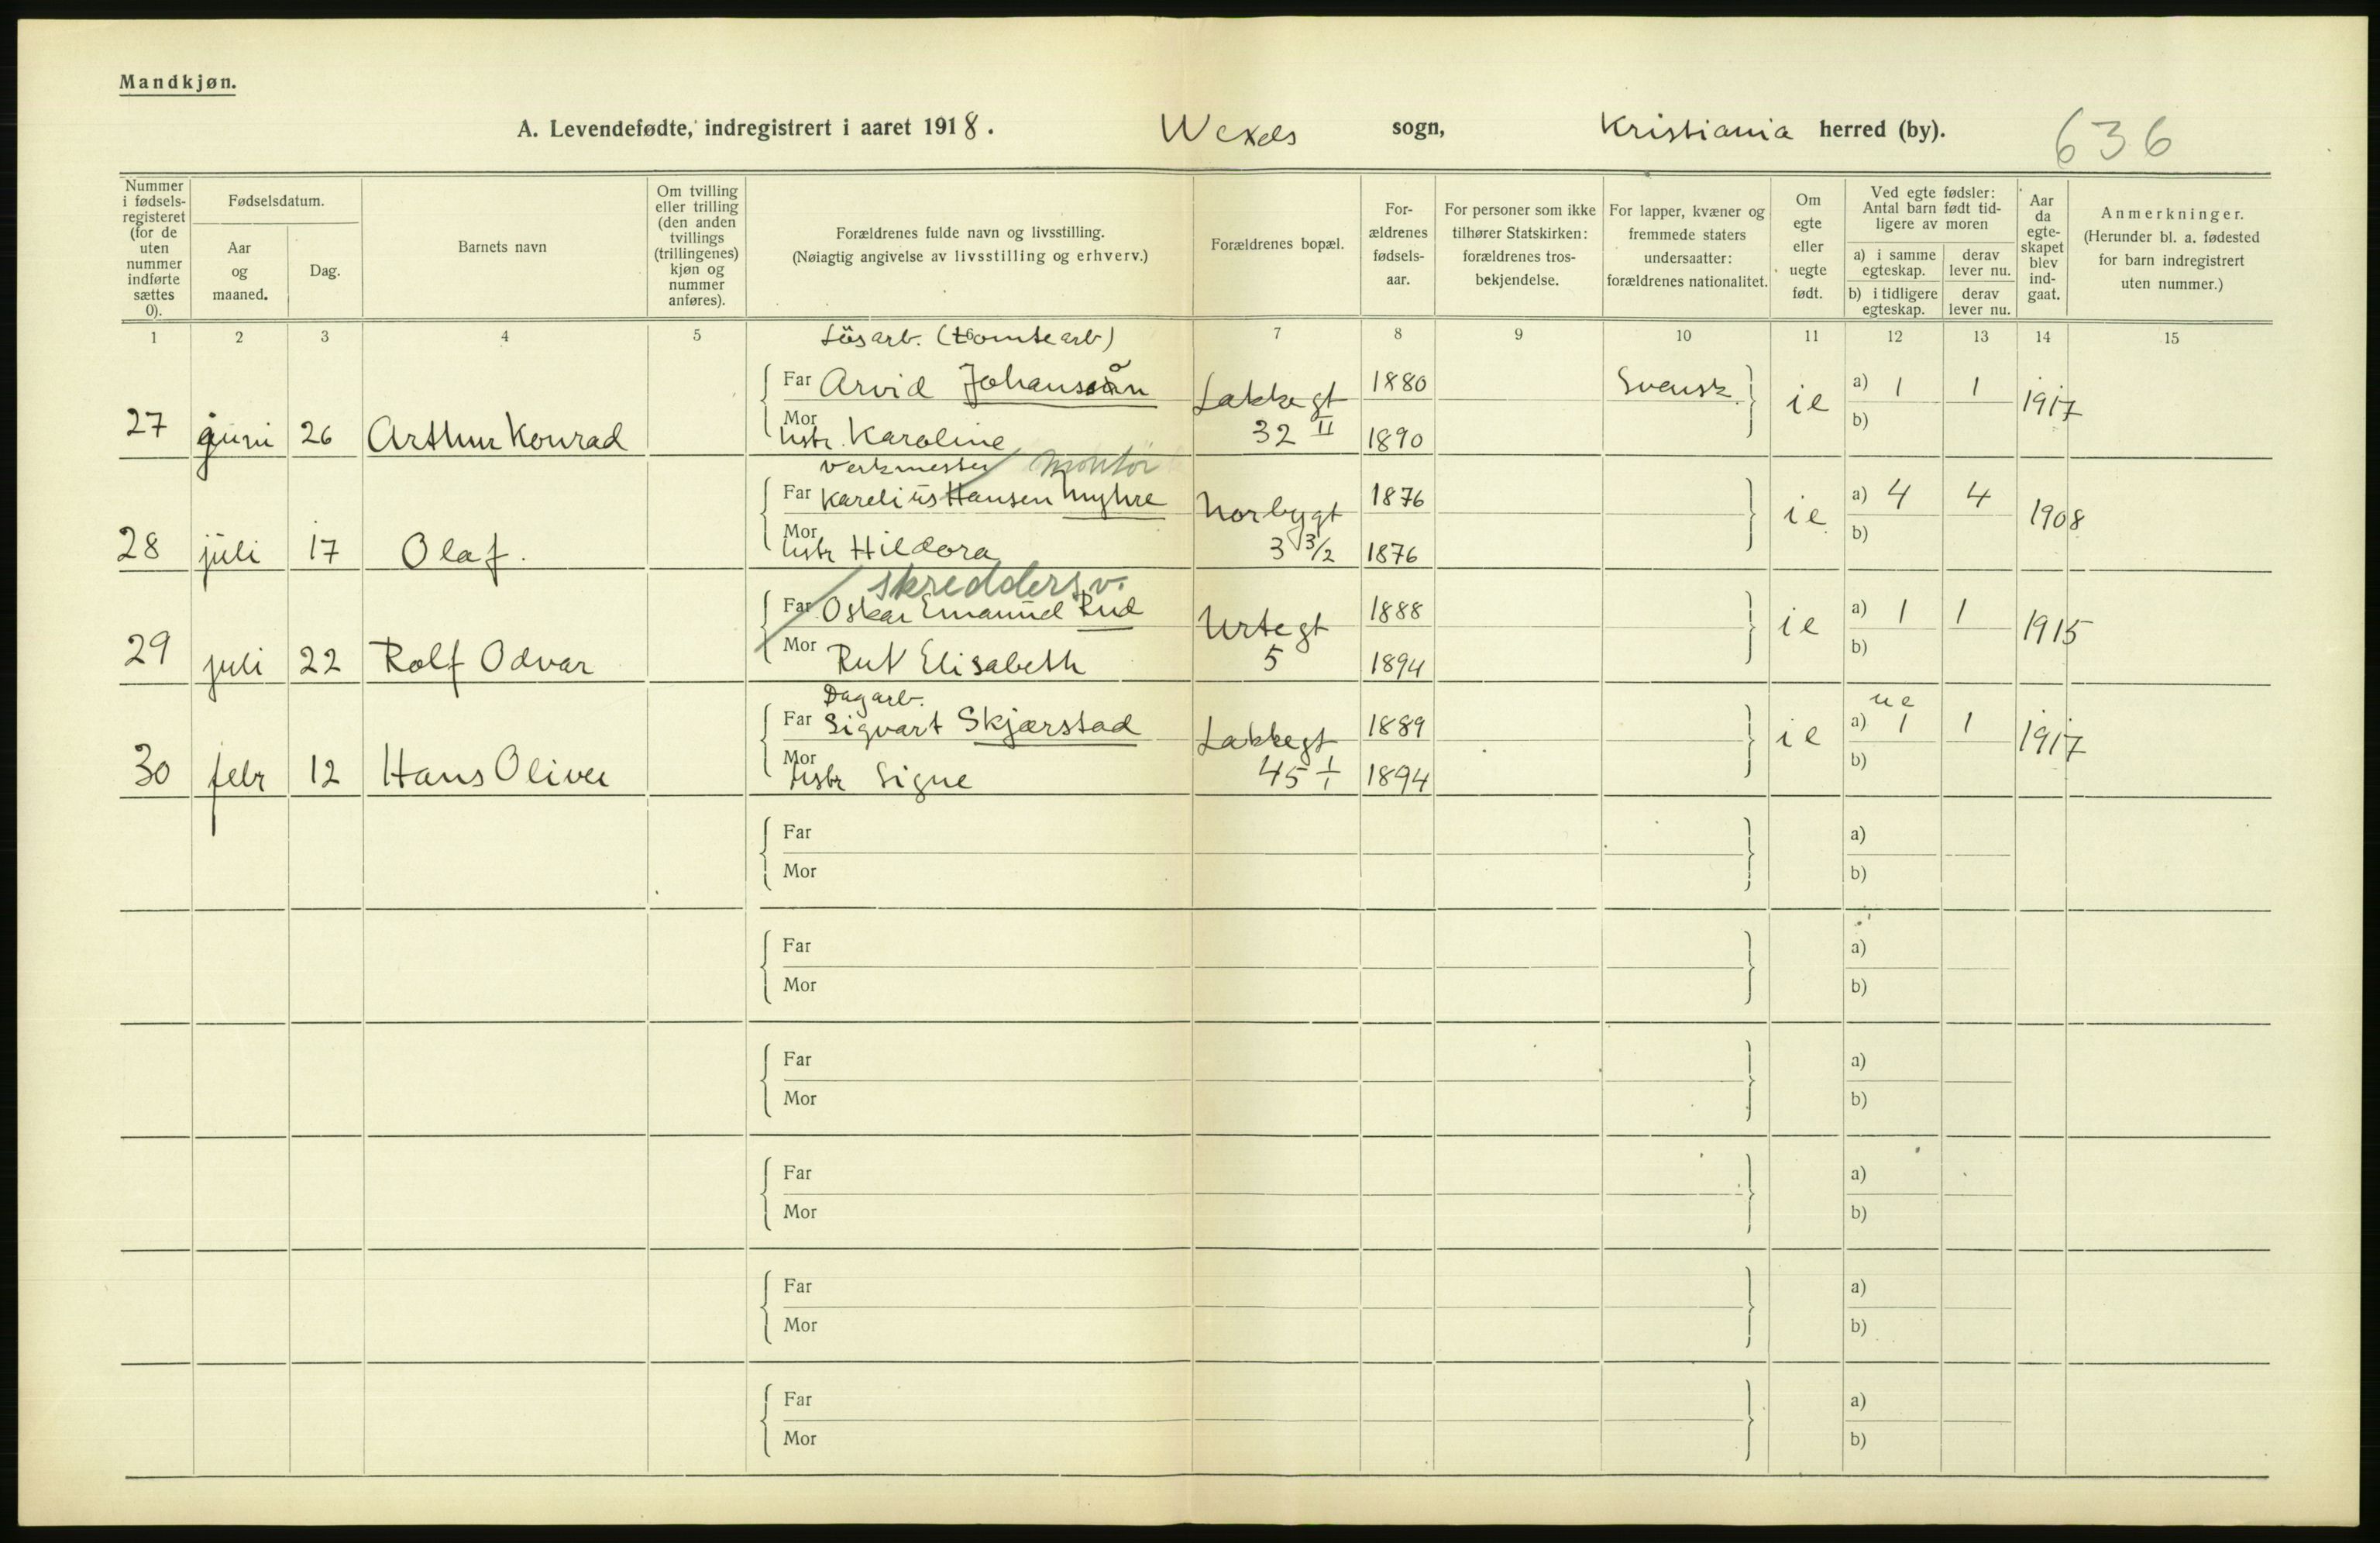 Mandkjøn.
A. Levendefødte, indregistrert i aaret 1918. Wexels sogn, Kristiania herred (by). 636
Nummer i fødsels-registeret (for de uten nummer indførte sættes 0).
Fødselsdatum.
Aar og maaned.
Dag.
Barnets navn
Om tvilling eller trilling (den anden tvillings (trillingenes) kjøn og nummer anføres).
Forældrenes fulde navn og livsstilling.
(Nøiagtig angivelse av livsstilling og erhverv.)
Forældrenes bopæl.
For-ældrenes fødsels-aar.
For personer som ikke tilhører Statskirken: forældrenes tros-bekjendelse.
For lapper, kvæner og fremmede staters undersaatter: forældrenes nationalitet.
Om egte eller uegte født.
Ved egte fødsler: Antal barn født tid-ligere av moren
a) i samme egteskap.
derav lever nu.
b) i tidligere egteskap.
derav lever nu.
Aar da egte-skapet blev ind-gaat.
Anmerkninger.
(Herunder bl. a. fødested for barn indregistrert uten nummer.)
1 2 3 4 5 7 8 9 10 11 12 13 14 15
Løsarb. (tomtearb)
Far Arvid Johansson 1880 Svensk a) 1 1
27 juni 26 Arthur Konrad Lakkegt ie 1917
Mor hstr. Karoline 32 II 1890 b)
Verkmester montør
Far Karelius Hansen Myhre 1876 a) 4 4
28 juli 17 Olaf. Norbygt ie 1908
Mor hstr Hildora 3 3/2 1876 b)
skredders.v.
Far Oskar Emanuel Rud 1888 a) 1 1
29 juli 22 Rolf Odvar Urtegt ie 1915
Mor Rut Elisabeth 5 1894 b)
Dagarb. ue
Far Sigvart Skjærstad 1889 a) 1 1
30 febr 12 Hans Oliver Lakkegt ie 1917
Mor hstr Signe 45 I/I 1894 b)
Far a)
Mor b)
Far a)
Mor b)
Far a)
Mor b)
Far a)
Mor b)
Far a)
Mor b)
Far a)
Mor b)